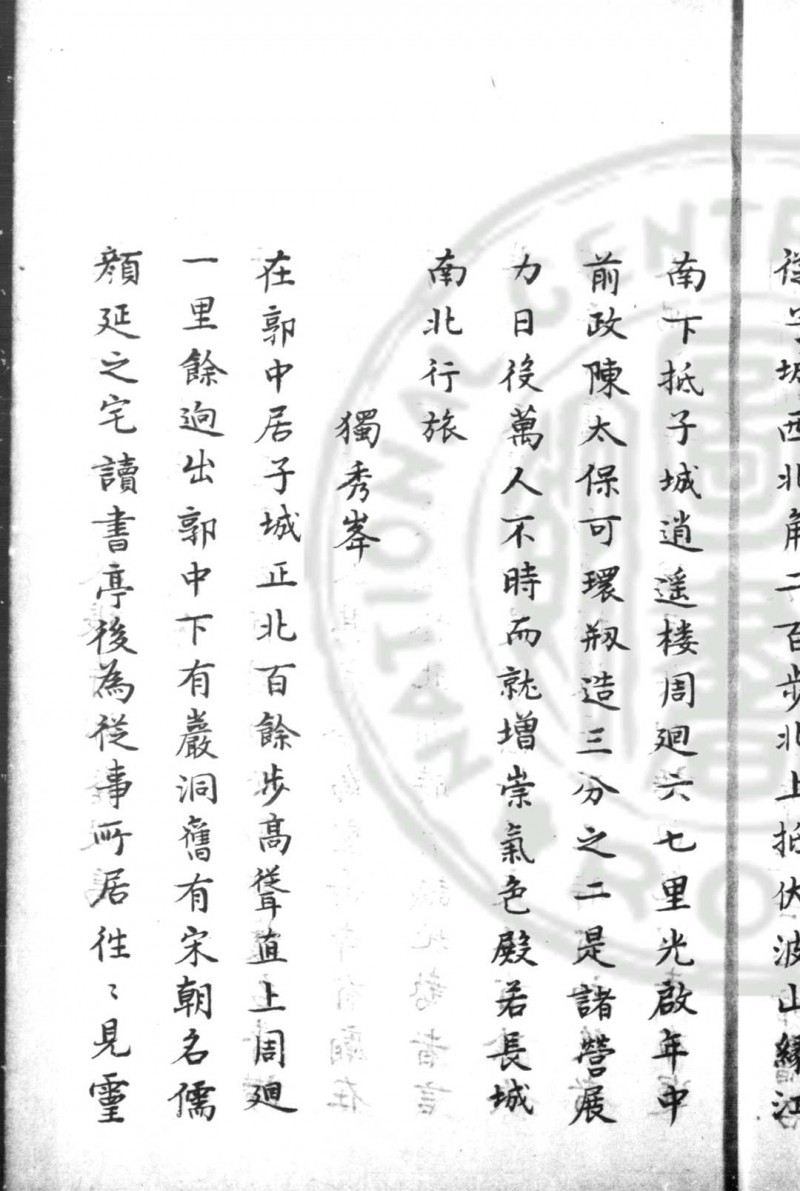 從子城西北角二百步北上抵伏波山緣江
南下抵子城逍遥樓周廻六七里光啟年中
前政陳太保可環剏造三分之二是諸營展
力日役萬人不時而就增崇氣色殿若長城
南北行旅
獨秀峯
在郭中居子城正北百餘步高聳直上周廻
一里餘逈出郭中下有巖洞舊有宋朝名儒
顔延之宅讀書亭後為從事所居徃〻見靈
NATIONAL CENTR
RO